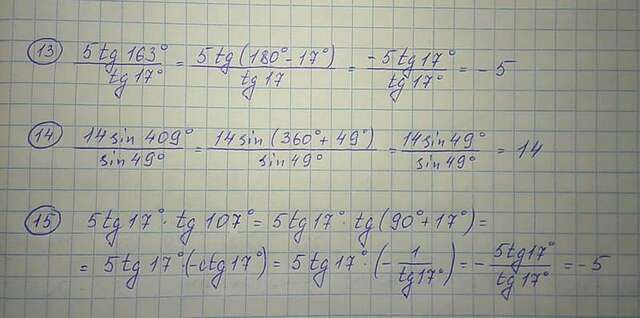 13 5 tg 163° / tg 17° = 5 tg (180° - 17°) / tg 17 = -5 tg 17° / tg 17° = -5
14 14 sin 409° / sin 49° = 14 sin (360° + 49°) / sin 49° = 14 sin 49° / sin 49° = 14
15 5 tg 17° · tg 107° = 5 tg 17° · tg (90° + 17°) =
= 5 tg 17° · (-ctg 17°) = 5 tg 17° · (- 1 / tg 17°) = - 5 tg 17° / tg 17° = -5